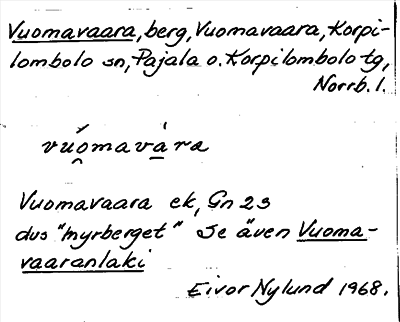 Vuomavaara, berg, Vuomavaara, Korpi-
lombolo sn, Pajala o. Korpilombolo tg,
Norrb. l.
vuomavara
Vuomavaara ek, Gn 23
dvs "myrberget" Se även Vuoma-
vaaranlaki
Eivor Nylund 1968.